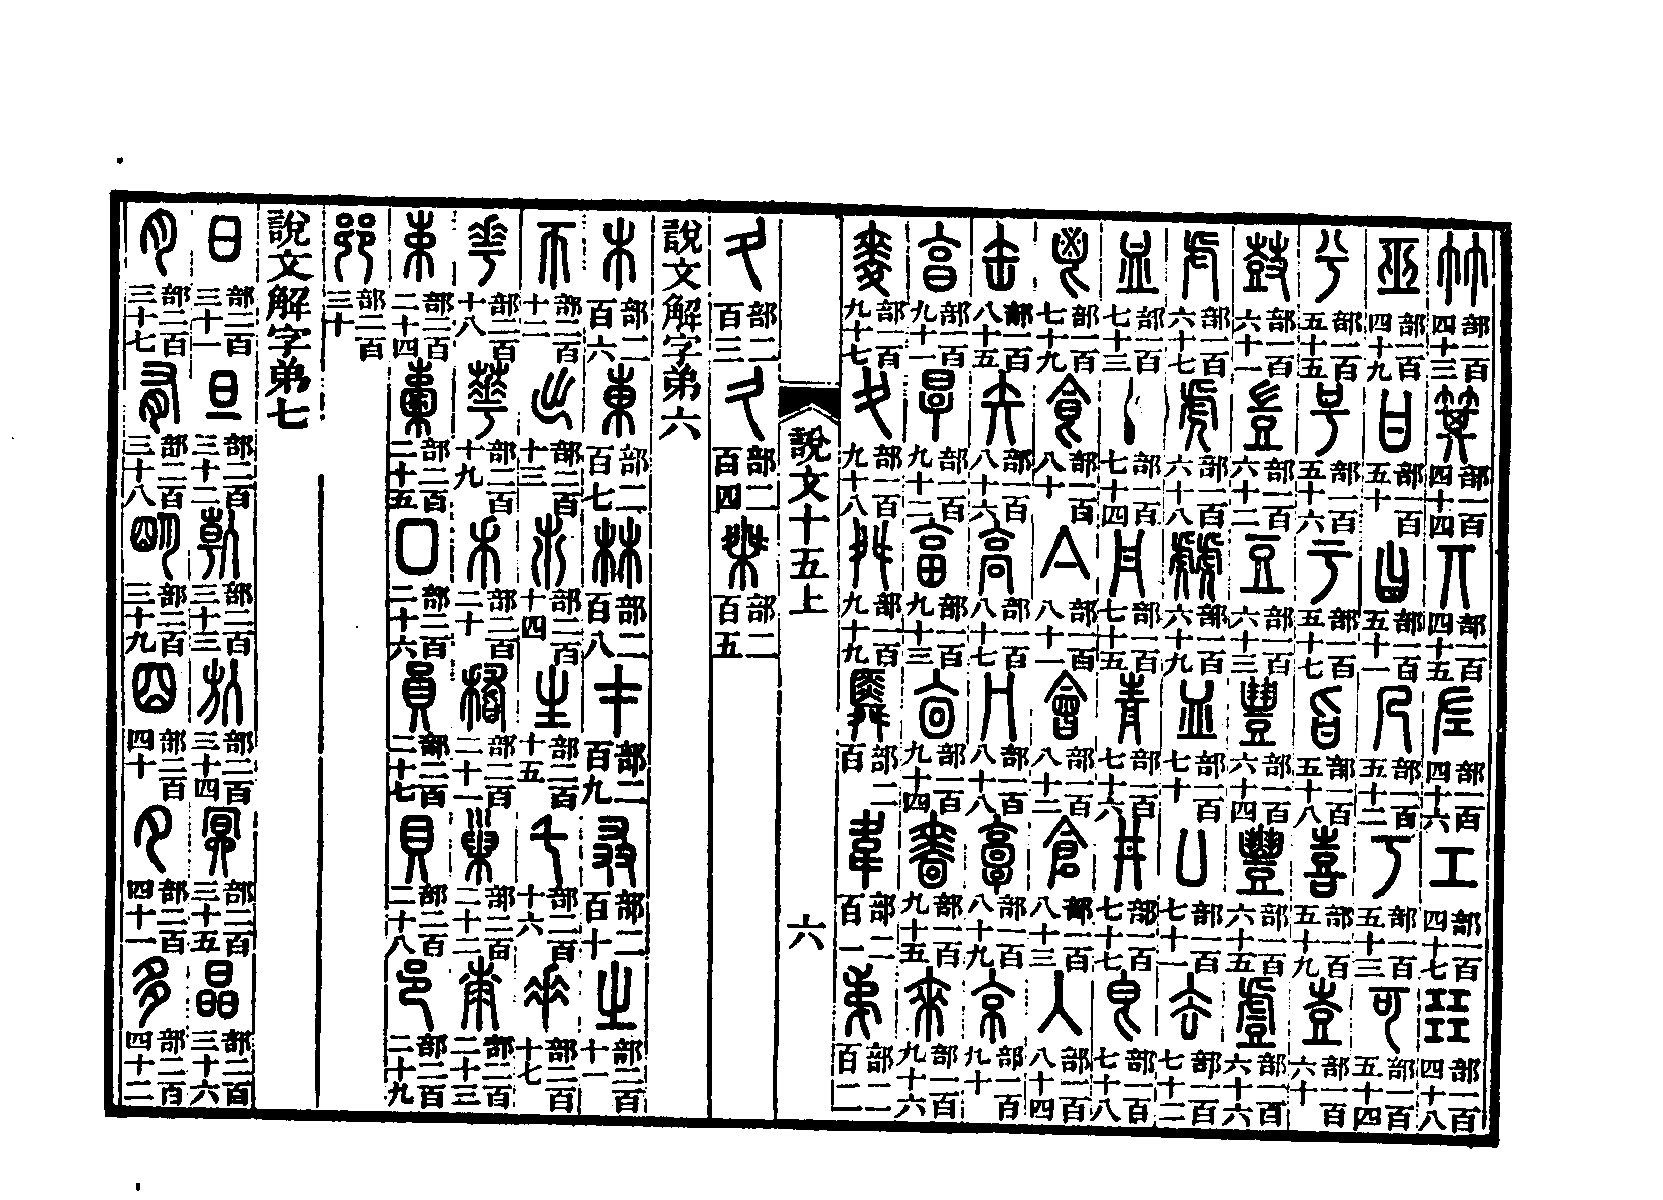 竹部一百四十三箕部一百四十四丌部一百四十五左部一百四十六工部一百四十七㠭部一百四十八
巫部一百四十九甘部一百五十曰部一百五十一乃部一百五十二丂部一百五十三可部一百五十四
兮部一百五十五号部一百五十六亏部一百五十七旨部一百五十八喜部一百五十九壴部一百六十
鼓部一百六十一豈部一百六十二豆部一百六十三豊部一百六十四豐部一百六十五䖒部一百六十六
虍部一百六十七虎部一百六十八虤部一百六十九皿部一百七十𠙴部一百七十一去部一百七十二
血部一百七十三丶部一百七十四丹部一百七十五青部一百七十六井部一百七十七皀部一百七十八
鬯部一百七十九食部一百八十亼部一百八十一會部一百八十二倉部一百八十三入部一百八十四
缶部一百八十五矢部一百八十六高部一百八十七冂部一百八十八𩫏部一百八十九京部一百九十
亯部一百九十一㫗部一百九十二畗部一百九十三㐭部一百九十四嗇部一百九十五來部一百九十六
麥部一百九十七夊部一百九十八舛部一百九十九舜部二百韋部二百一弟部二百二
說文十五上 六
夂部二百三久部二百四桀部二百五
說文解字弟六
木部二百六東部二百七林部二百八才部二百九叒部二百十之部二百十一
帀部二百十二出部二百十三𣎵部二百十四生部二百十五乇部二百十六𠂹部二百十七
𠌶部二百十八華部二百十九𥝌部二百二十稽部二百二十一巢部二百二十二桼部二百二十三
束部二百二十四㯻部二百二十五囗部二百二十六員部二百二十七貝部二百二十八邑部二百二十九
𨛜部二百三十
說文解字弟七
日部二百三十一旦部二百三十二倝部二百三十三㫃部二百三十四冥部二百三十五晶部二百三十六
月部二百三十七有部二百三十八朙部二百三十九囧部二百四十夕部二百四十一多部二百四十二